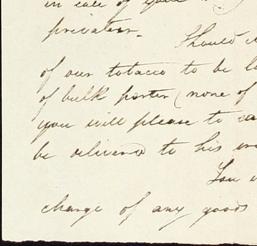 in case of your
privateer.
Should
of our tobacco to be
of bulk porter (none of
you will please to
be delivered to his
You
charge of any goods